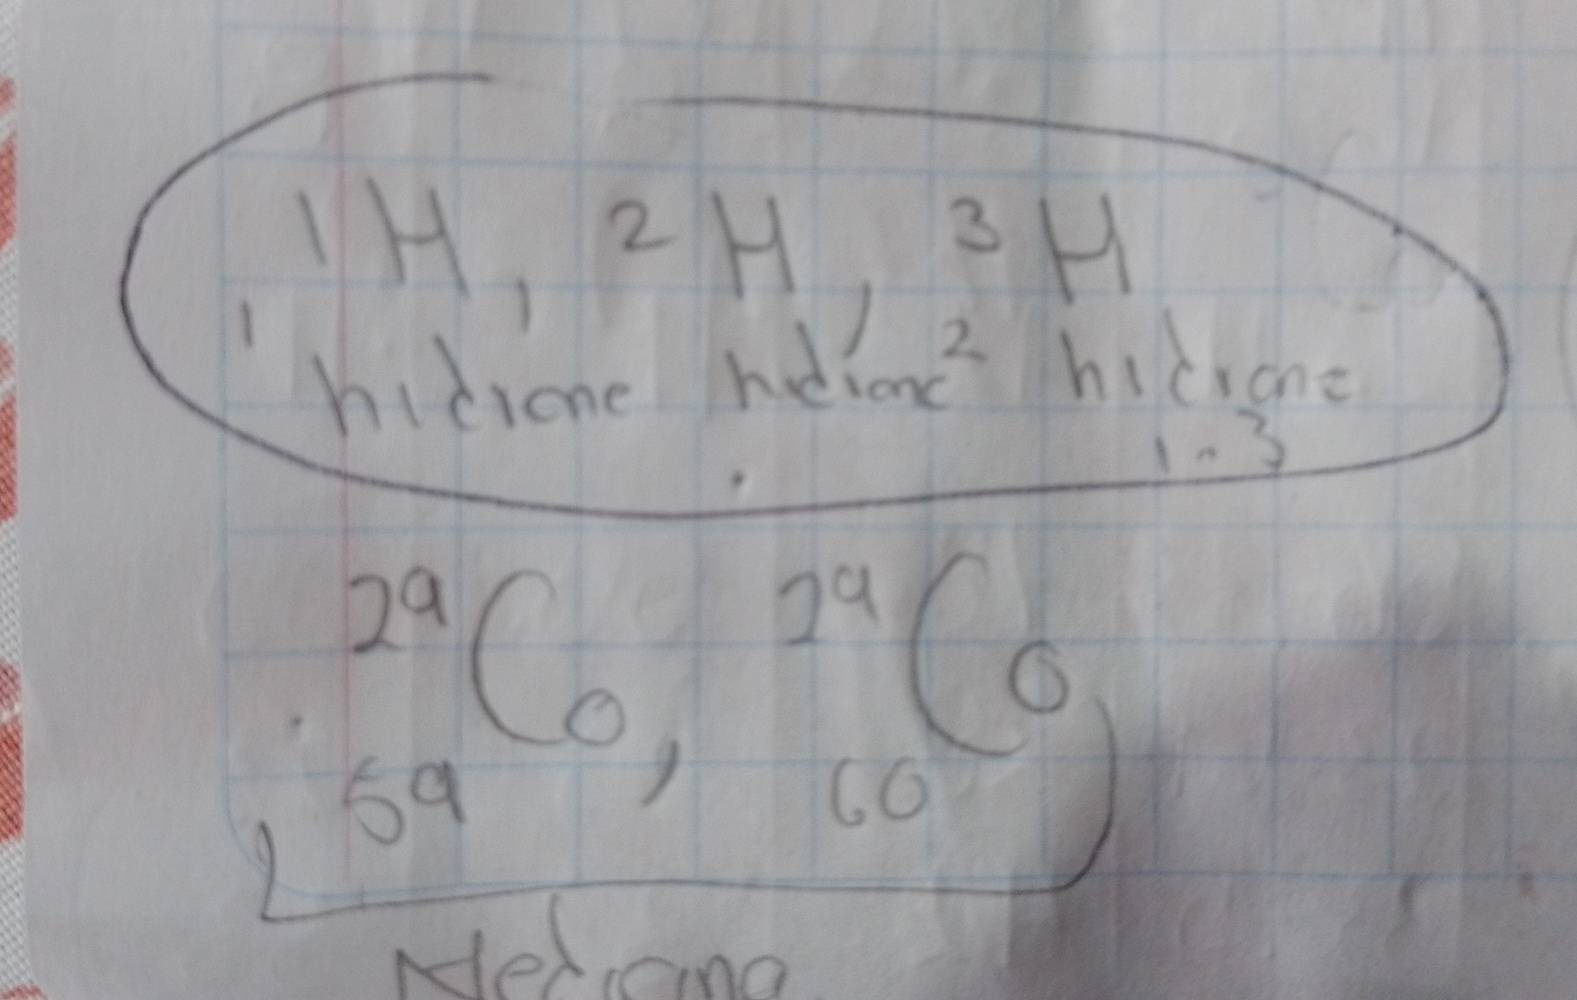 1 H, 2 H, 3 H
1 hidrone hidronc 2 hidrone
1 - 3
29 Co, 29 Co
59 60
Medicina